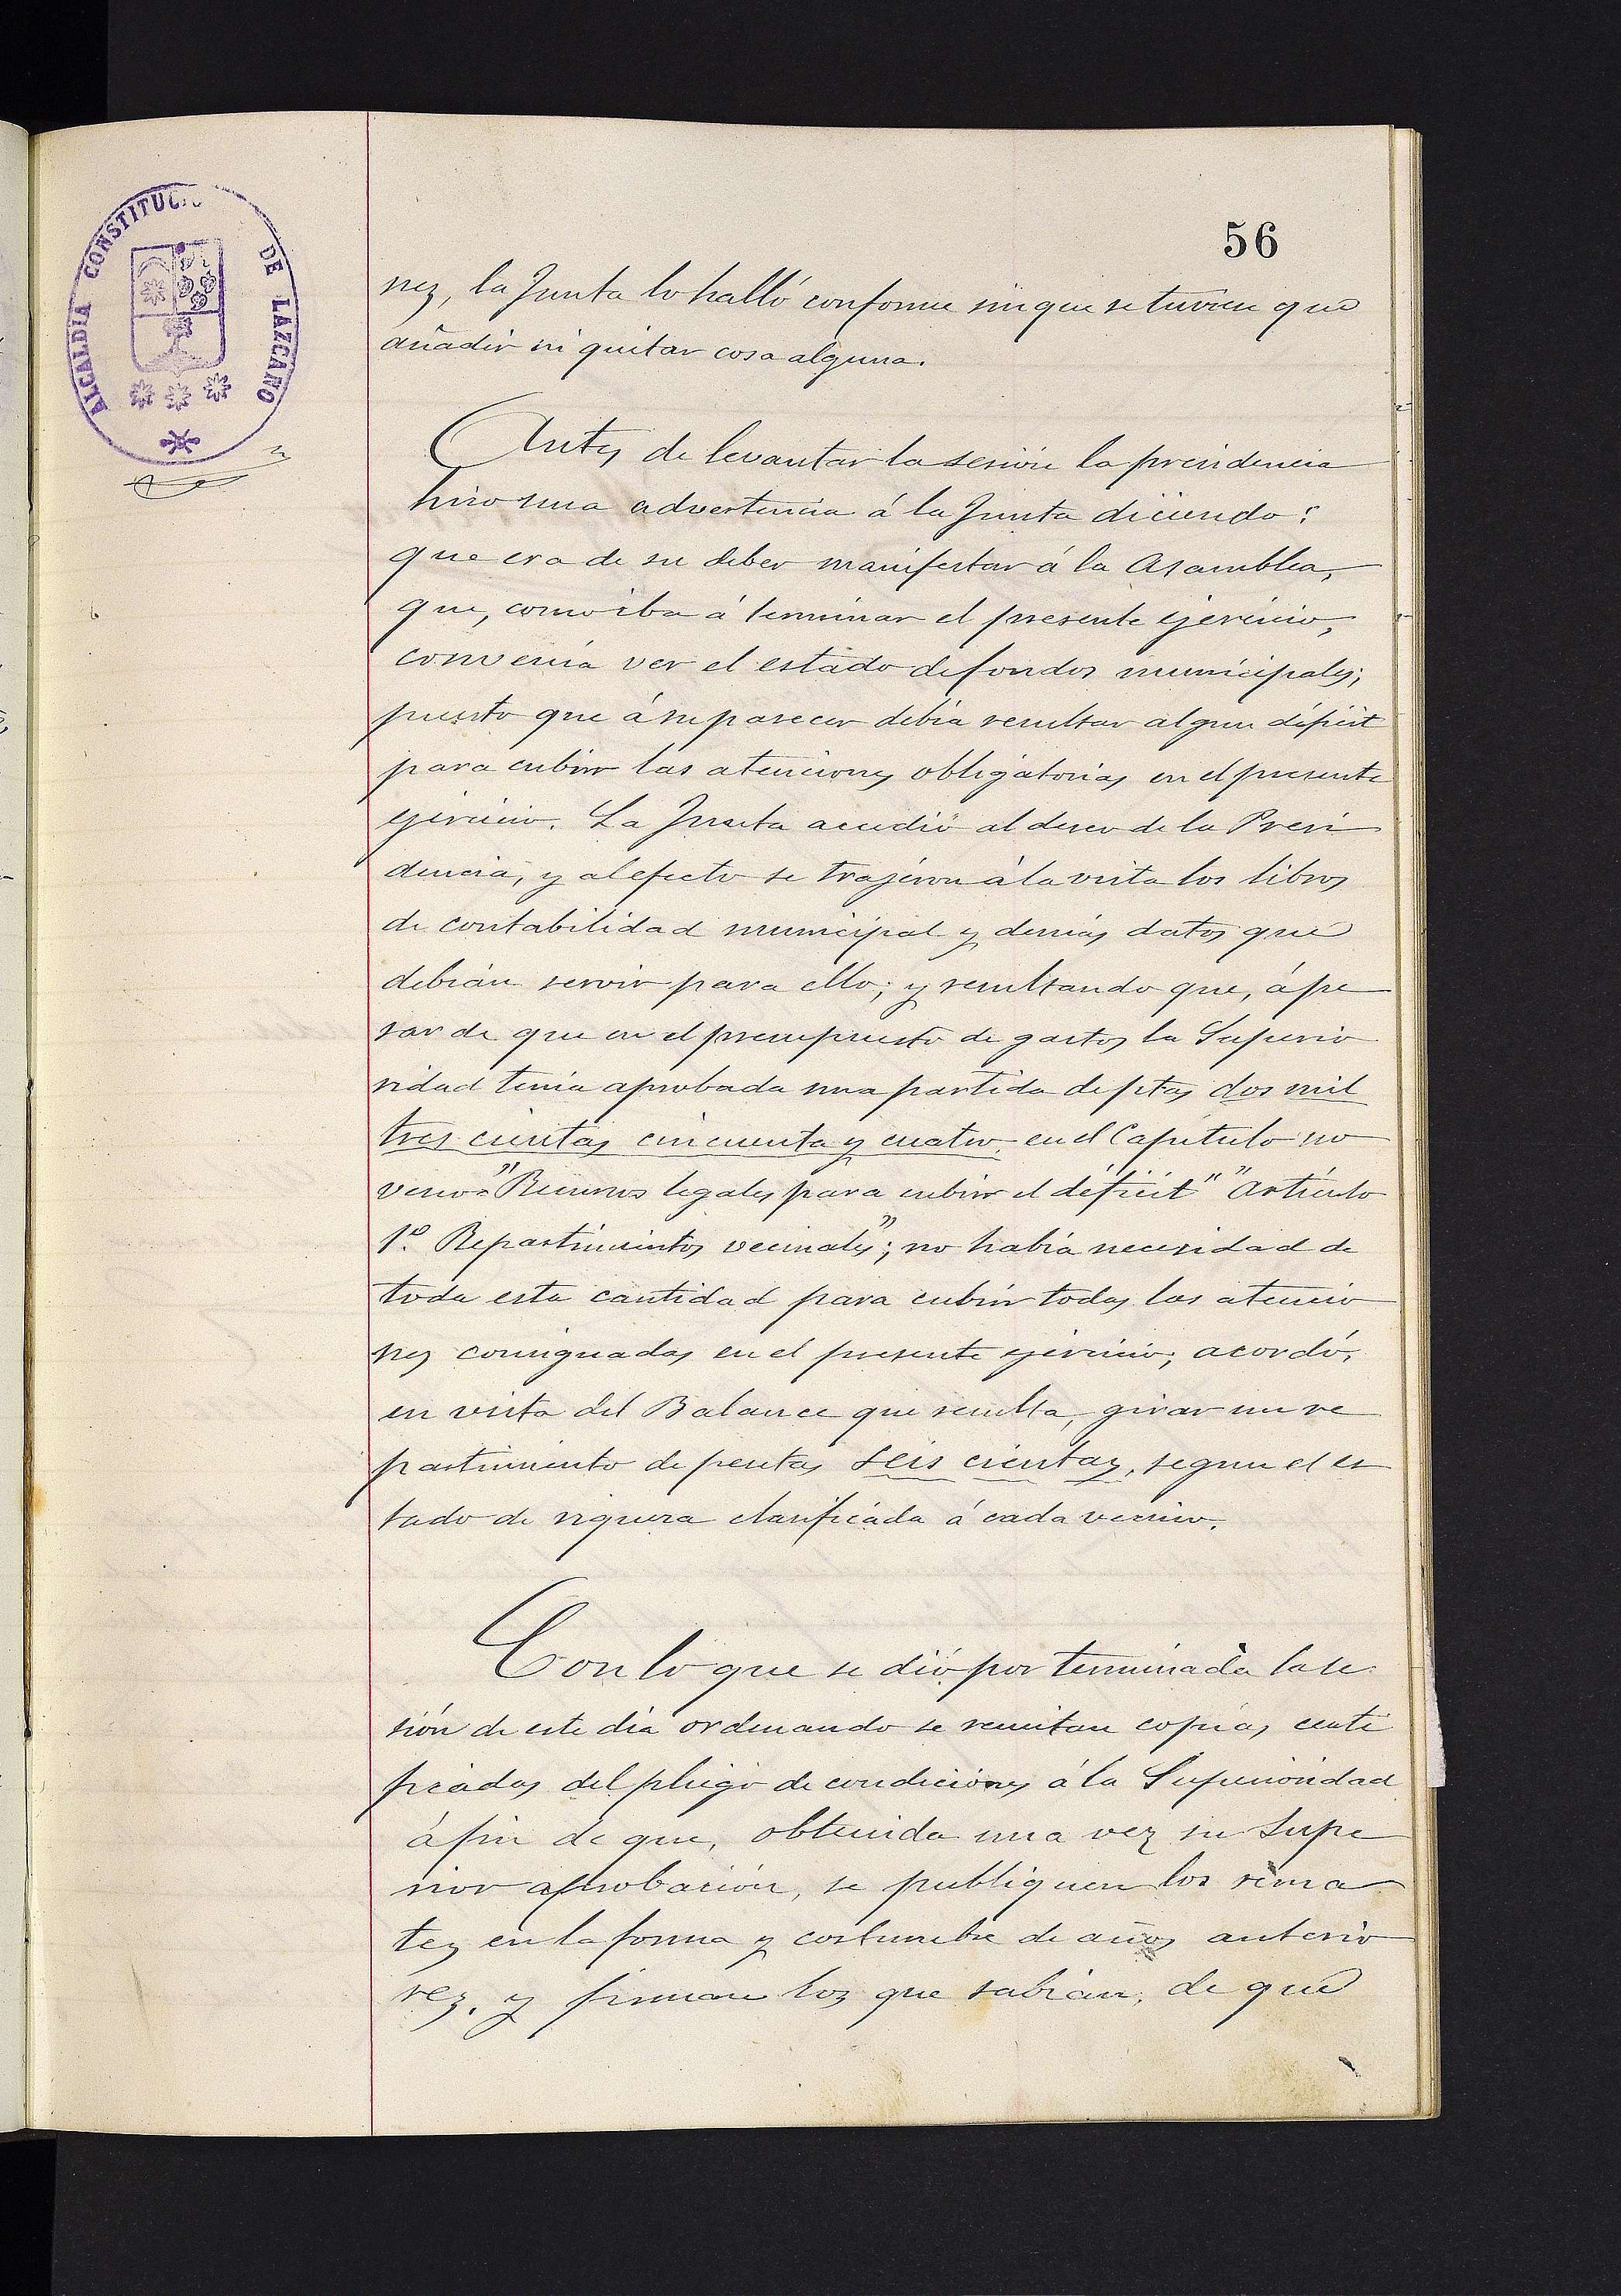 ALCALDIA CONSTITUCIO DE LAZCANO
56
nes, la Junta lo halló conforme sin que se tuviese que
añadir ni quitar cosa alguna.
Antes de levantar la sesión la presidencia
hizo una advertencia á la Junta diciendo:
que era de su deber manifestar á la Asamblea,
que, como iba á terminar el presente ejercicio,
convenía ver el estado de fondos municipales;
puesto que á su parecer debía resultar algun déficit
para cubrir las atenciones obligatorias en el presente
ejercicio. La Junta accedió al deseo de la Presi
dencia, y al efecto se trajéron á la vista los libros
de contabilidad municipal y demás datos que
debían servir para ello; y resultando que, á pe
sar de que en el presupuesto de gastos la Superio
ridad tenía aprobada una partida de ptas dos mil
tres cientas cincuenta y cuatro en el Capítulo no
veno = "Recursos legales para cubrir el déficit" "Artículo
1º. Repartimientos vecinales"; no había necesidad de
toda esta cantidad para cubrir todas las atencio
nes consignadas en el presente ejercicio; acordó,
en vista del Balance que resulta, girar un re
partimiento de pesetas seis cientas, segun el es
tado de riqueza clasificada á cada vecino.
Con lo que se dió por terminada la se
sión de este día ordenando se remitan copias certi
ficadas del pliego de condiciones á la Superioridad
á fin de que, obtenida una vez su supe
rior aprobación, se publiquen los rema
tes en la forma y costumbre de años anterio
res. y firman los que sabían, de que